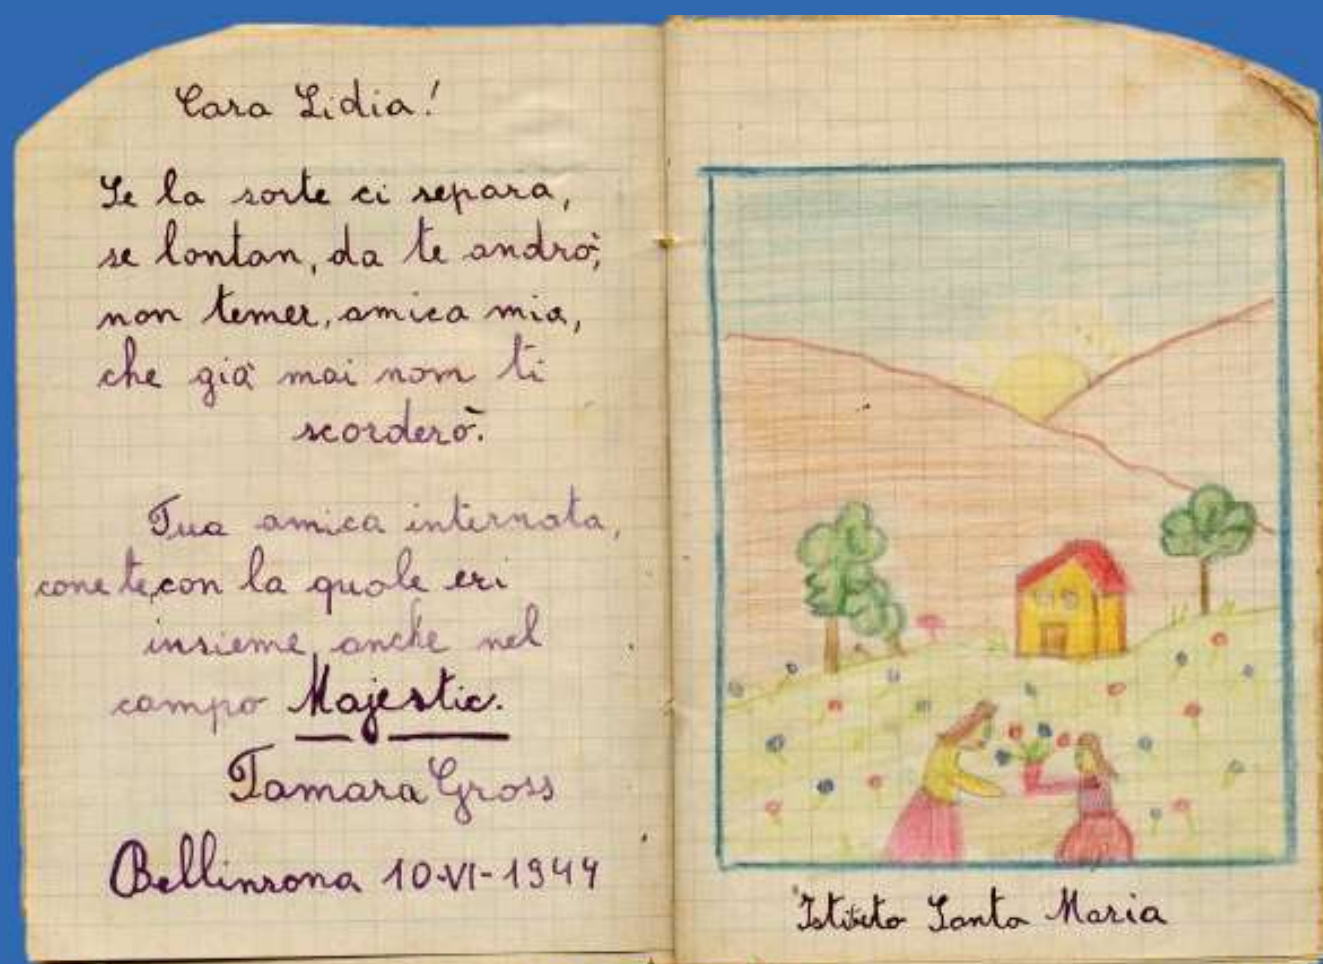 Cara Lidia!
Se la sorte ci separa,
se lontan, da te andrò,
non temer, amica mia,
che già mai nom ti
scorderò.
Tua amica internata,
come te, con la quale eri
insieme, anche nel
campo Majestic.
Tamara Gross
Bellinzona 10-VI-1944
Istituto Santa Maria